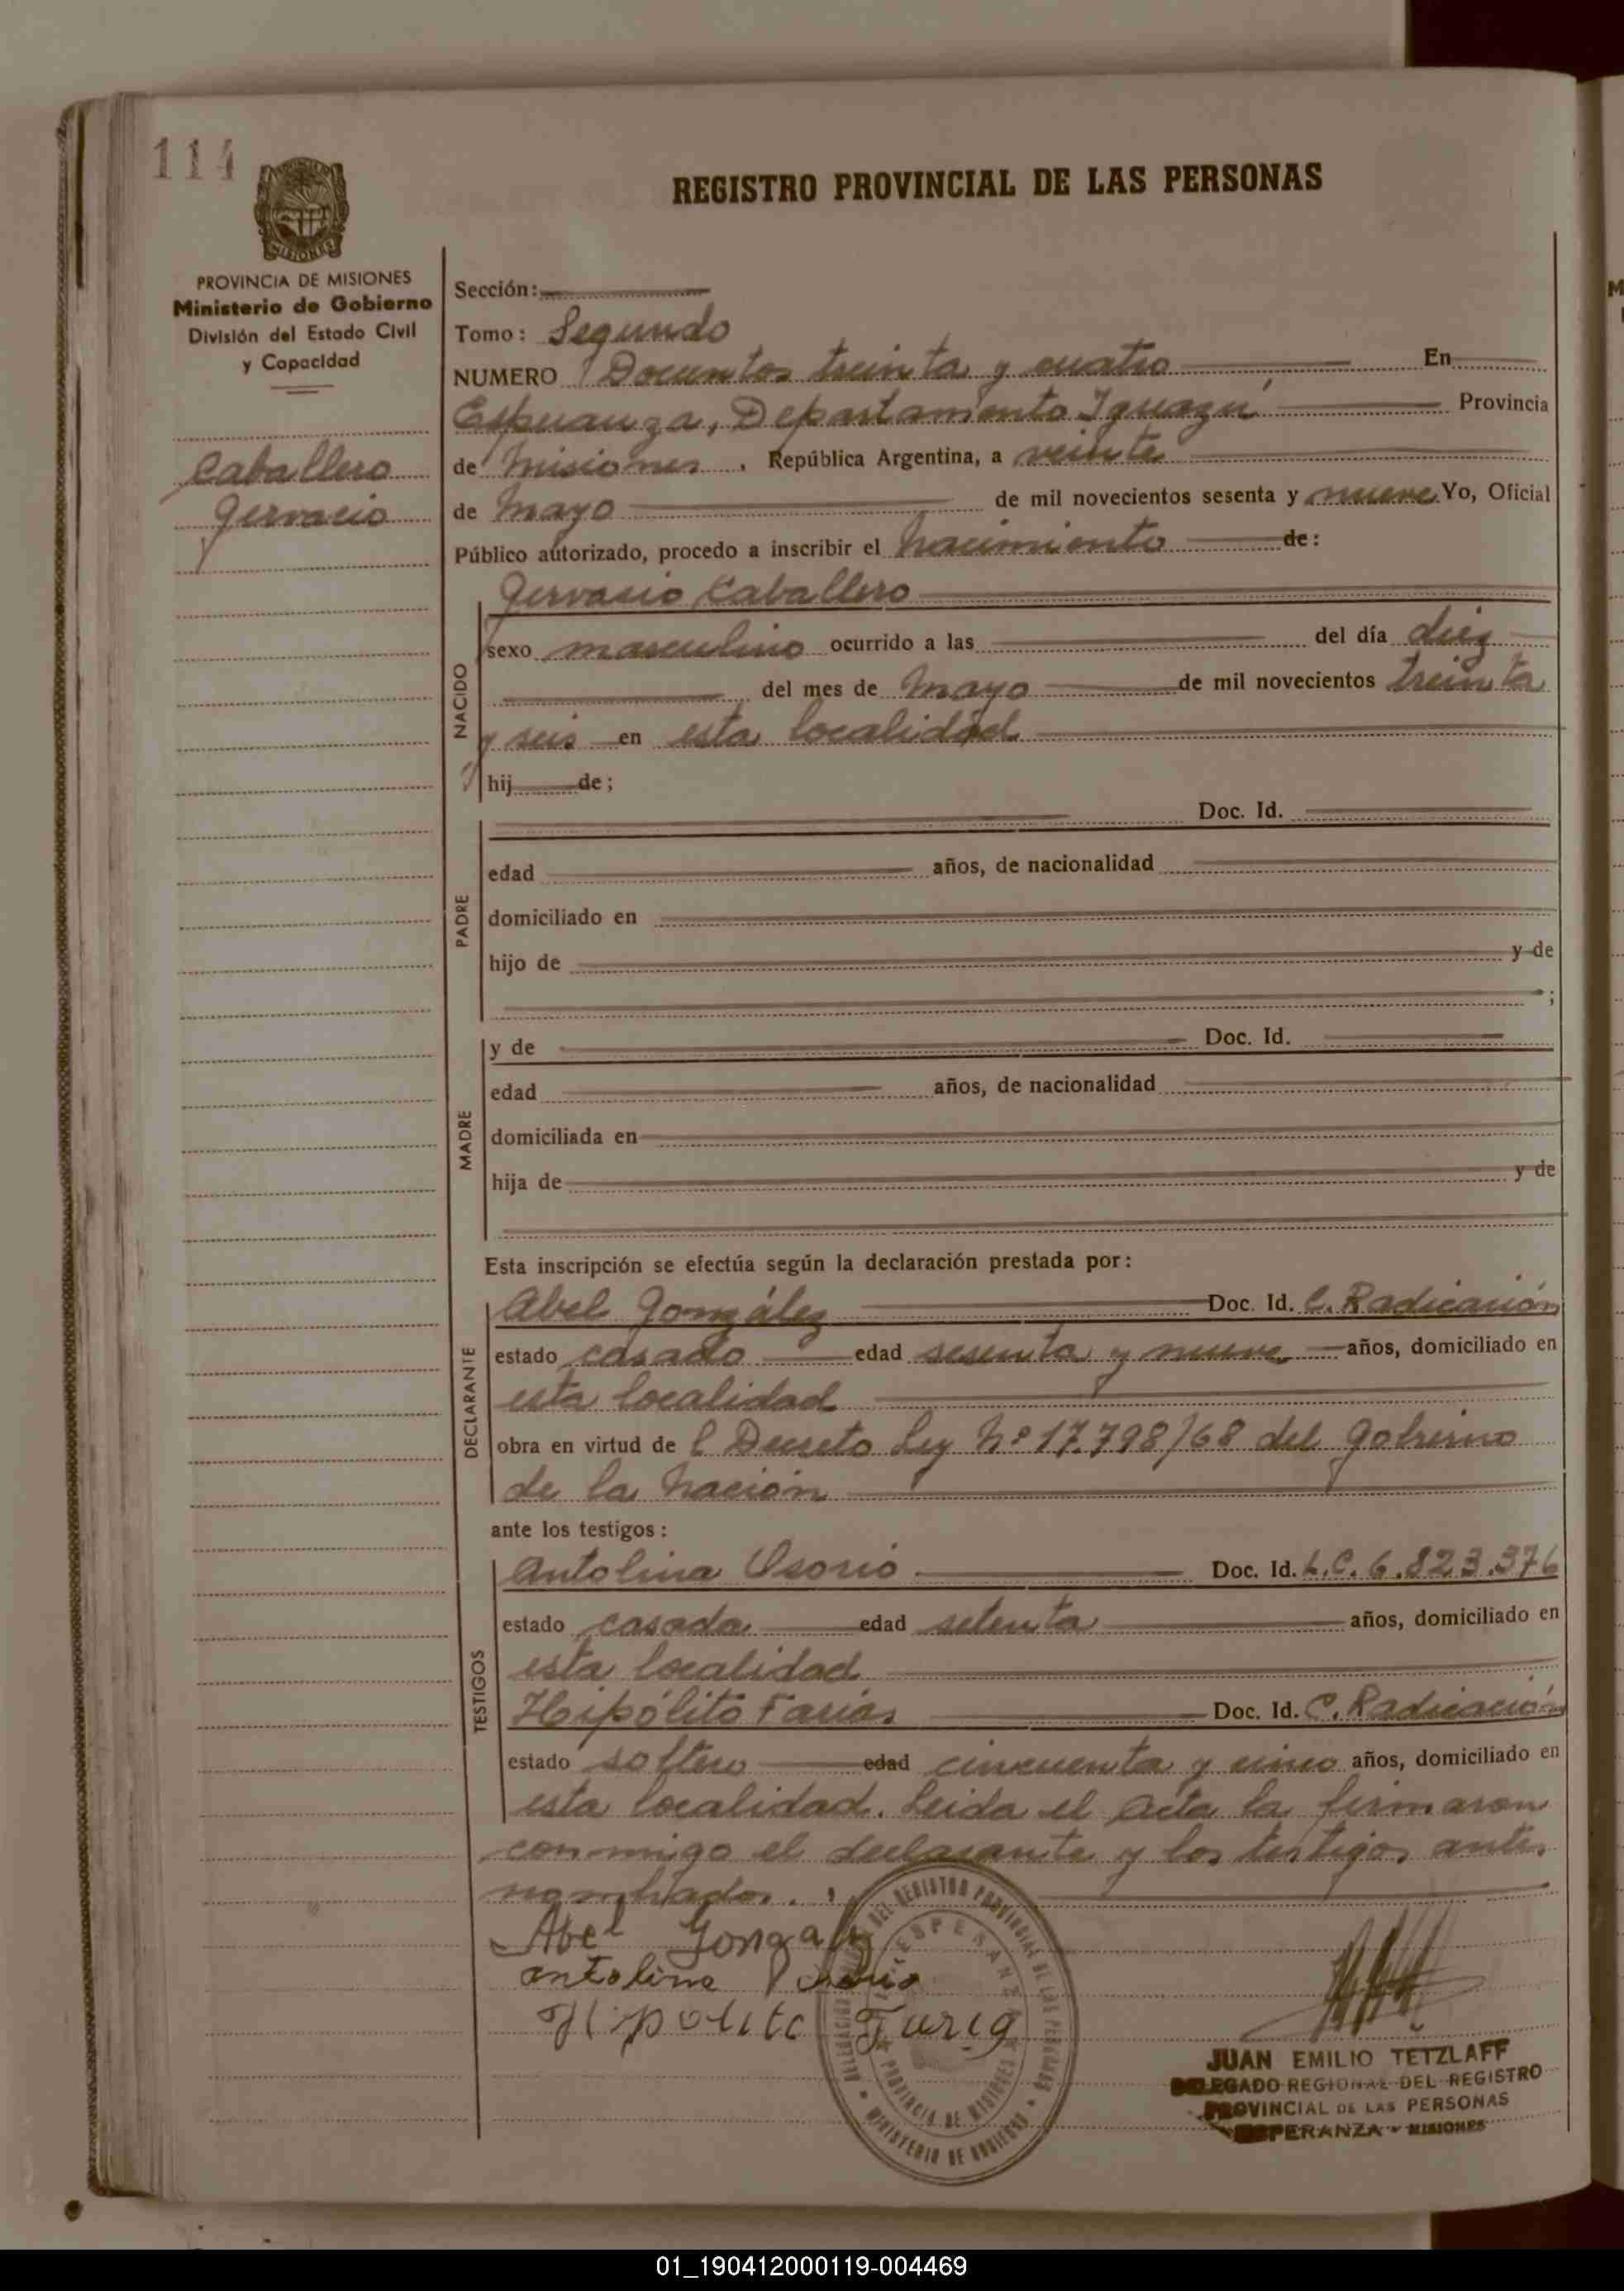 114
REGISTRO PROVINCIAL DE LAS PERSONAS
MISIONES
PROVINCIA DE MISIONES
Ministerio de Gobierno
División del Estado Civil
y Capacidad
Caballero
Gervacio
Sección:
Tomo: Segundo
NUMERO Docientos treinta y cuatro En
Esperanza, Departamento Iguazú Provincia
de Misiones, República Argentina, a veinte
de Mayo de mil novecientos sesenta y nueve Yo, Oficial
Público autorizado, procedo a inscribir el nacimiento de:
Gervasio Caballero
NACIDO
sexo masculino ocurrido a las del día diez
del mes de Mayo de mil novecientos treinta
y seis en esta localidad
hij de;
PADRE
Doc. Id.
edad años, de nacionalidad
domiciliado en
hijo de y de
;
MADRE
y de Doc. Id.
edad años, de nacionalidad
domiciliada en
hija de y de
Esta inscripción se efectúa según la declaración prestada por:
DECLARANTE
Abel González Doc. Id. C. Radicación
estado casado edad sesenta y nueve años, domiciliado en
esta localidad
obra en virtud de l Decreto Ley Nº 17.798/68 del Gobierno
de la Nación
ante los testigos:
TESTIGOS
Antolina Osorio Doc. Id. L.C. 6.823.376
estado casada edad setenta años, domiciliado en
esta localidad
Hipólito Farias Doc. Id. C. Radicación
estado soltero edad cincuenta y cinco años, domiciliado en
esta localidad. Leida el Acta la firmaron
conmigo el declarante y los testigos ante
nombrados.
Abel Gonzalz
antolina
Hipolito Faria
DELEGACION DEL REGISTRO PROVINCIAL DE LAS PERSONAS
ESPERANZA
PROVINCIA DE MISIONES
MINISTERIO DE GOBIERNO
JUAN EMILIO TETZLAFF
DELEGADO REGIONAL DEL REGISTRO
PROVINCIAL DE LAS PERSONAS
ESPERANZA - MISIONES
01_190412000119-004469